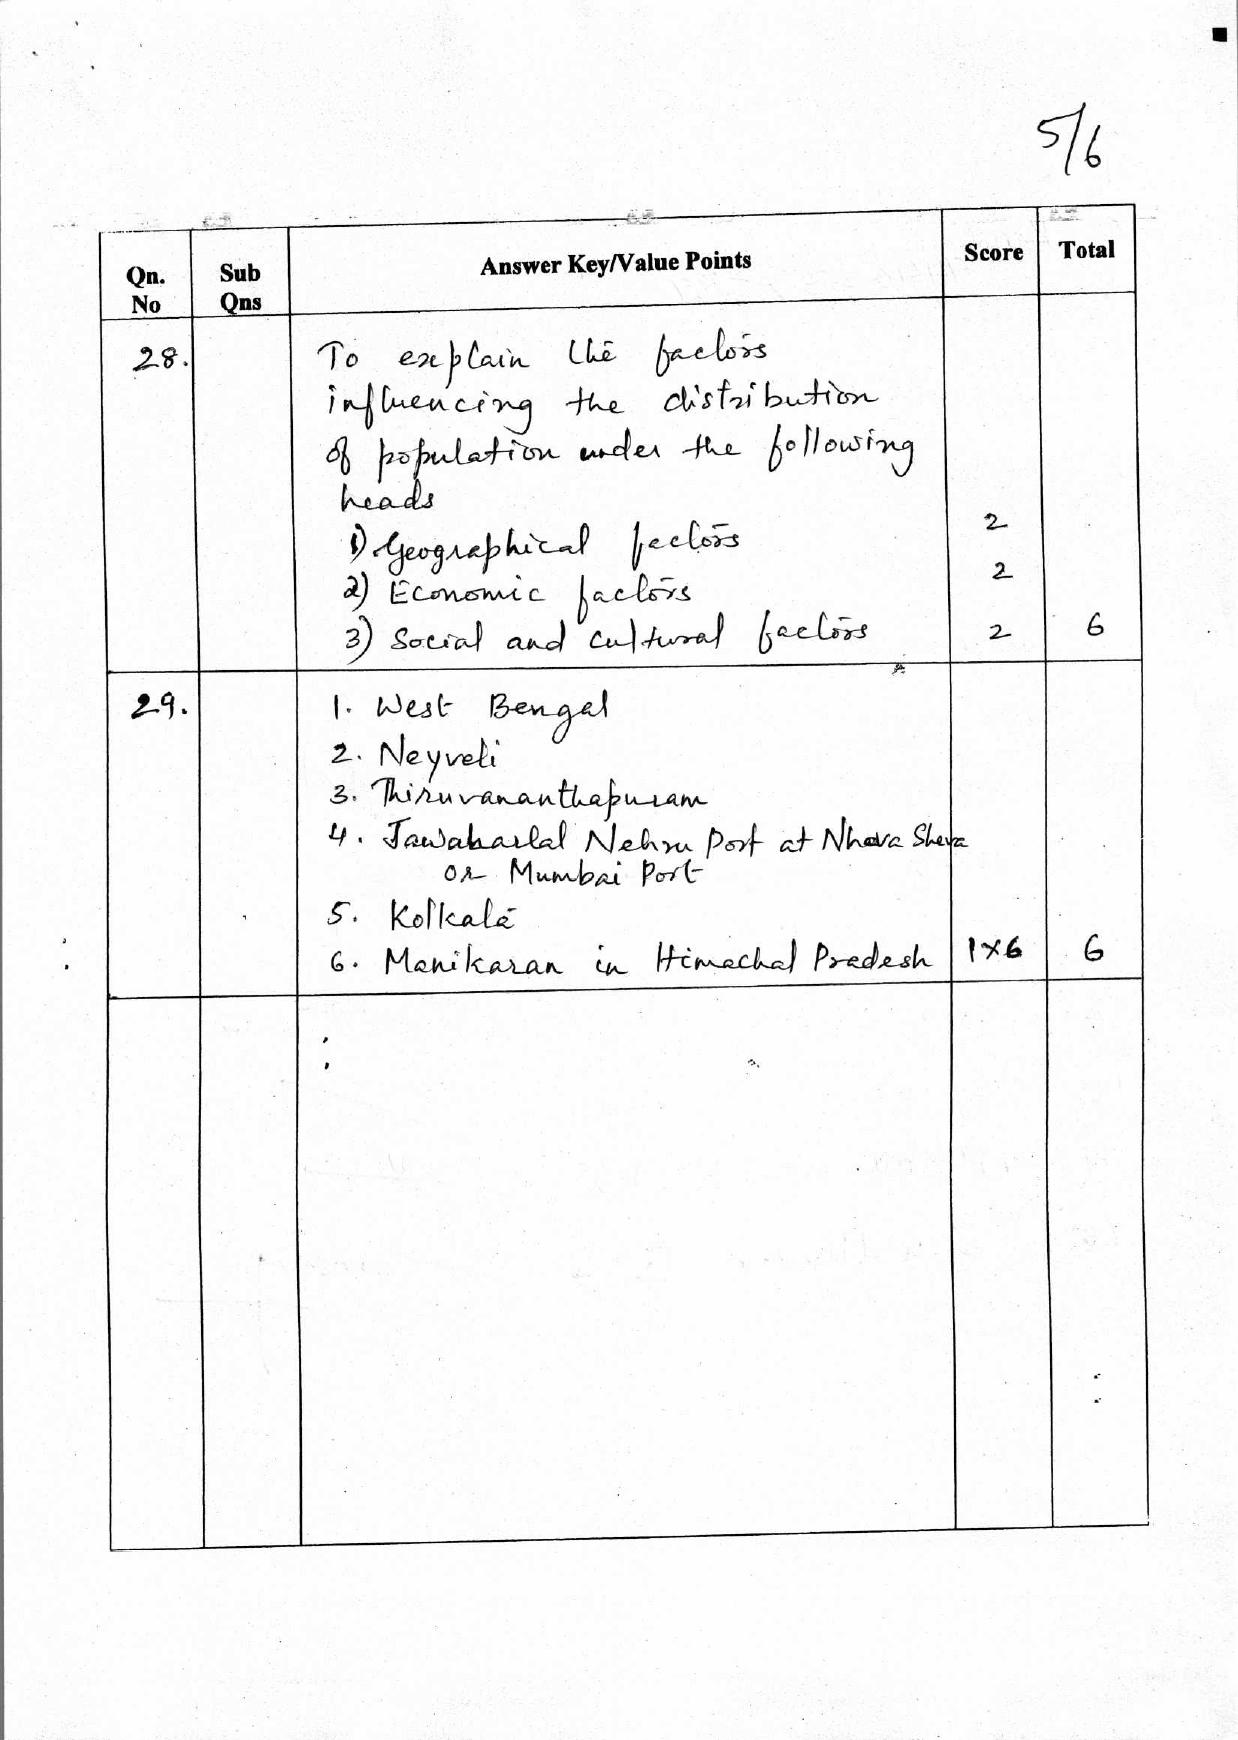 5/6
Qn. No Sub Qns Answer Key/Value Points Score Total
28. To explain the factors
influencing the distribution
of population under the following
heads
1) Geographical factors 2
2) Economic factors 2
3) Social and cultural factors 2 6
29. 1. West Bengal
2. Neyveli
3. Thiruvananthapuram
4. Jawaharlal Nehru Port at Nhava Sheva
or Mumbai Port
5. Kolkata
6. Manikaran in Himachal Pradesh 1×6 6